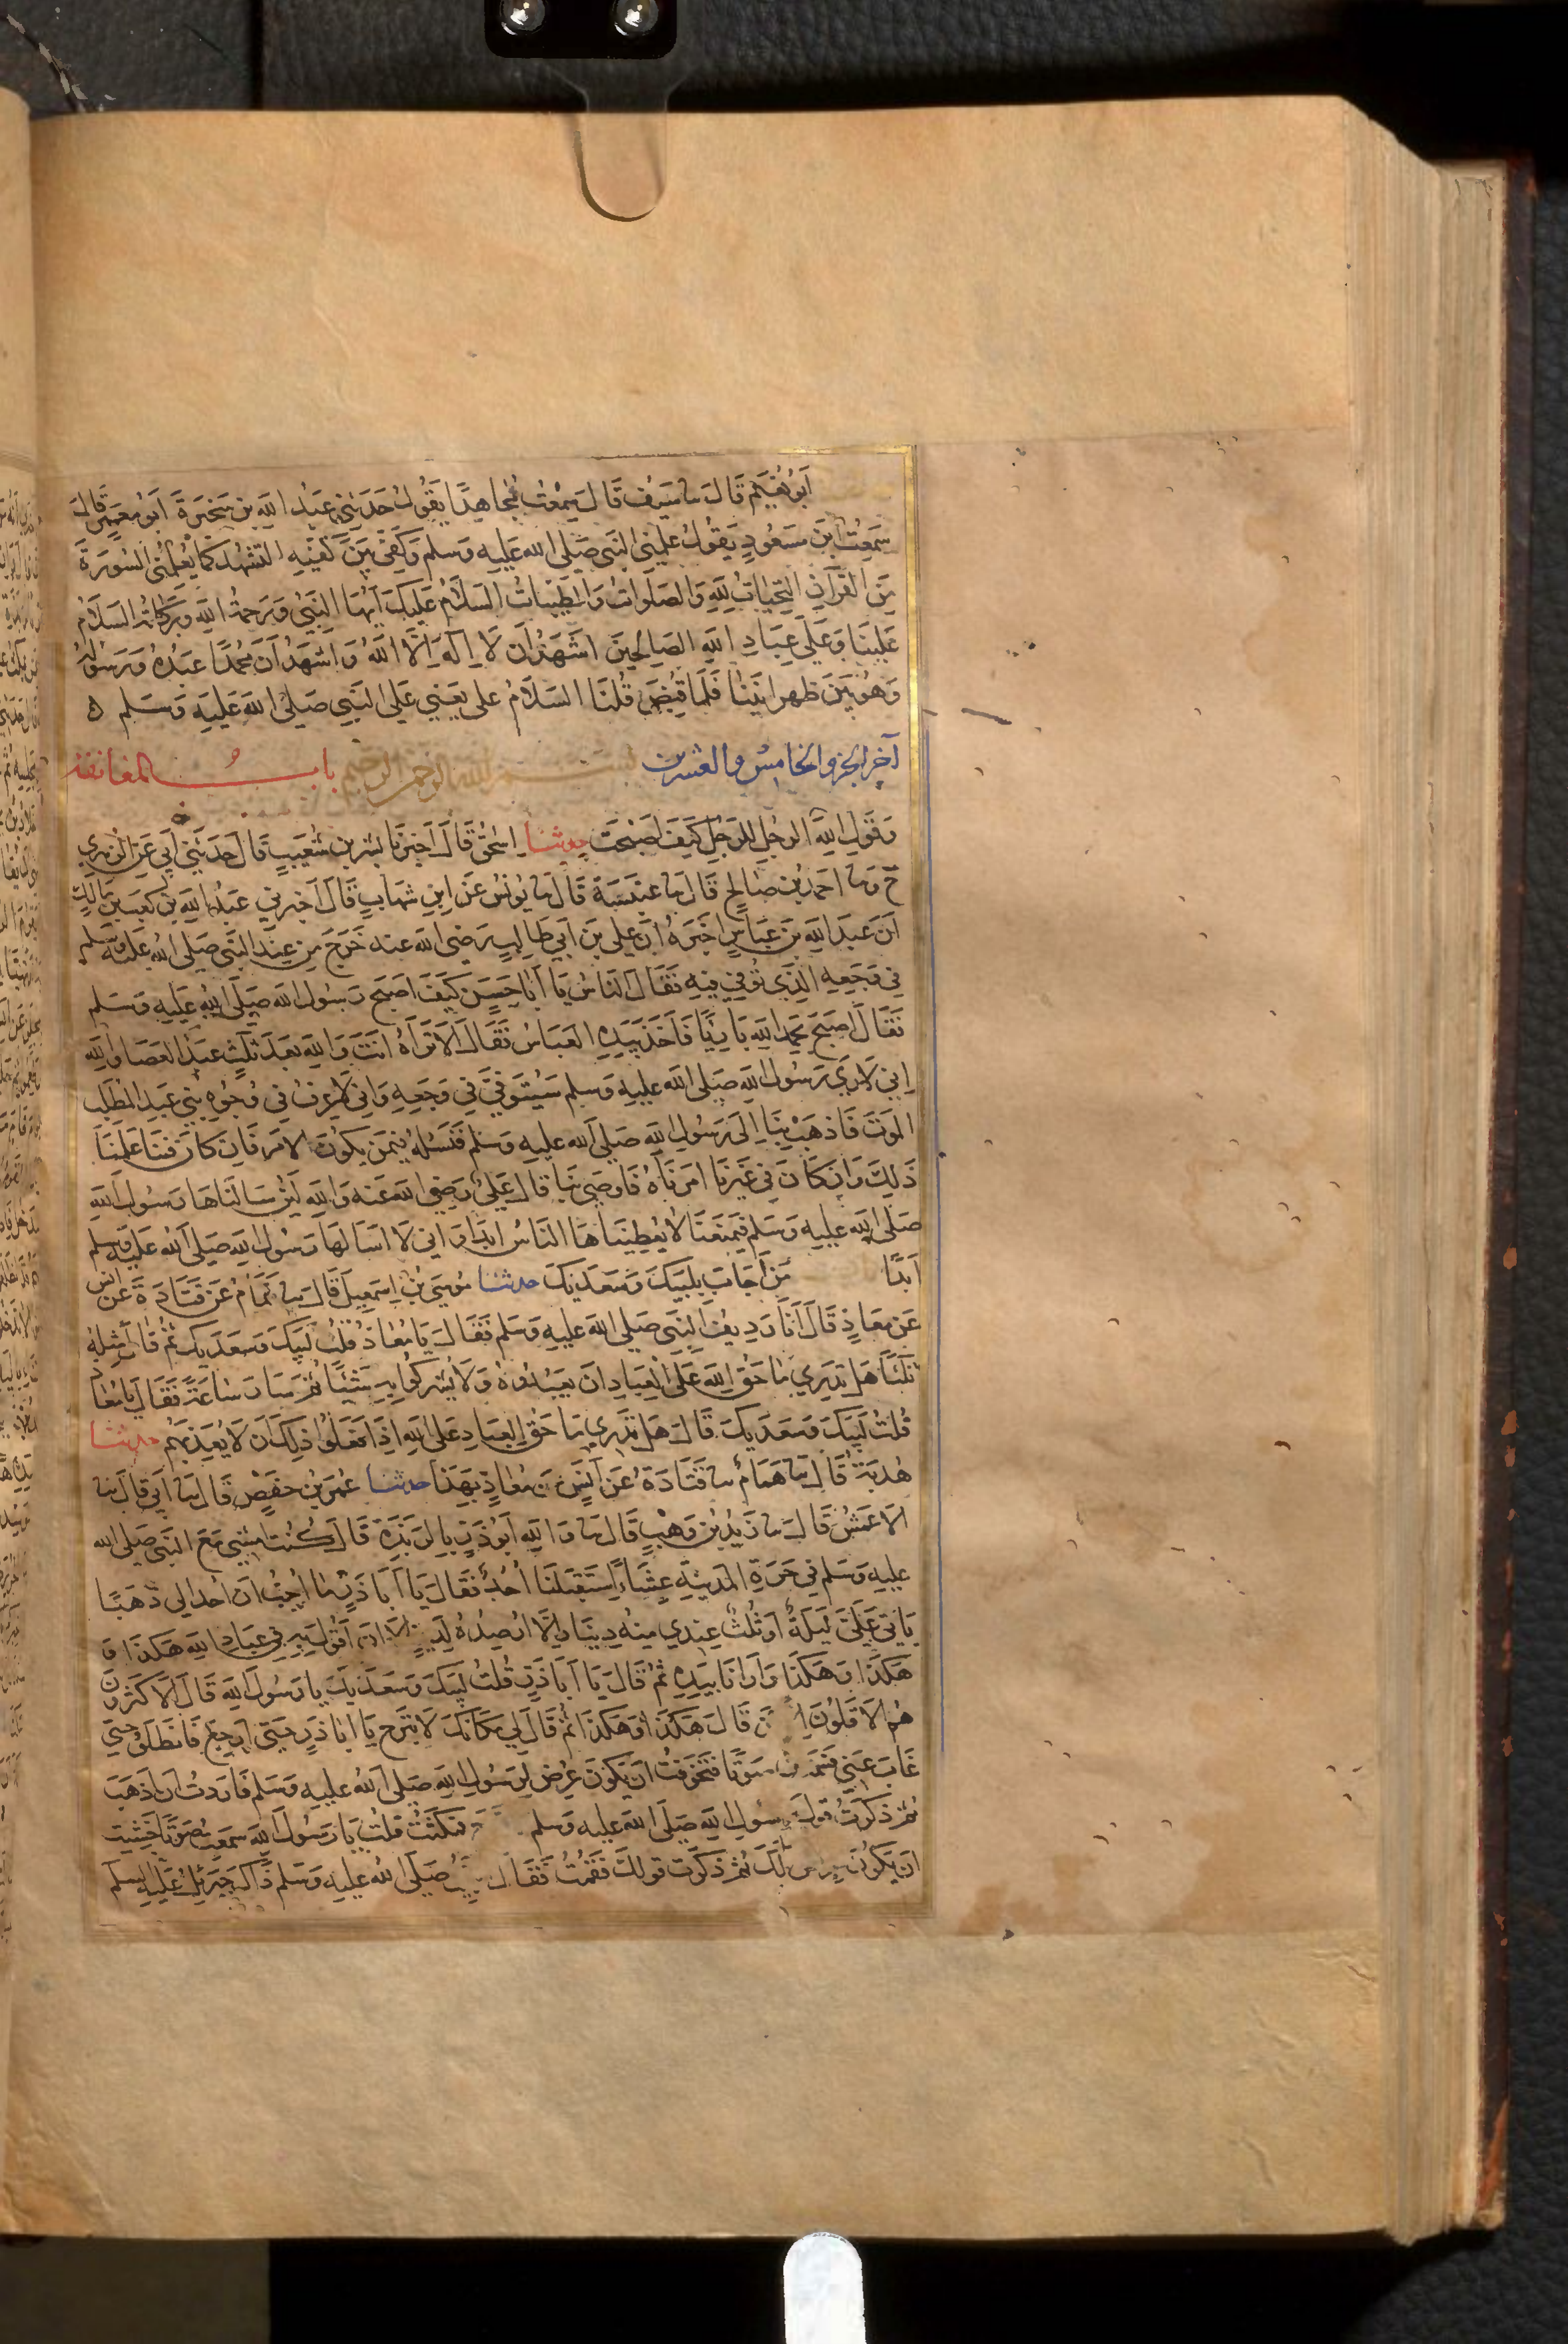 اَبُو نُعَيْمٍ قَالَ نا سَيْفٌ قَالَ سَمِعْتُ مُجَاهِدًا يَقُولُ حَدَّثَنِي عَبْدُ اللَّهِ بن سَخْبَرَةَ أبو مَعْمَرٍ قَالَ
سَمِعْتُ ابْنَ مَسْعُودٍ يَقُولُ عَلَّمَنِي النَّبِي صَلَّى الله عَلَيهِ وَسَلم وَكَفِّي بَيْنَ كَفَّيْهِ التَّشَهُّدَ كَمَا يُعَلِّمُنِي السُّورَةَ
مِنَ القُرْآنِ التَّحِيَّاتُ لِلَّهِ وَالصَّلَوَاتُ وَالطَّيِّبَاتُ السَّلَامُ عَلَيْكَ اَيُّهَا النَّبِيُّ وَرَحْمَةُ اللَّهِ وَبَرَكَاتُهُ السَّلَامُ
عَلَيْنَا وَعَلَى عِبَادِ اللَّهِ الصَّالِحِينَ اَشْهَدُ اَن لَا اِلَهَ اِلَّا اللَّهُ وَاَشْهَدُ اَنَّ مُحَمَّدًا عَبْدُهُ وَرَسُولُهُ
وَهُوَ بَيْنَ ظهرانَيْنَا فَلَمَّا قُبِضَ قُلْنَا السَّلَامُ على يَعْنِي عَلَى النَّبِي صَلَى الله عَلَيهِ وَسَلم ه
آخر الجزو الخامس والعشرين بسم الله الرحمن الرحيم بابُ المعانقة
وَقَولِ الرجُلِ للرَّجُلِ كَيْفَ اَصْبَحْتَ حدثنا اِسْحٰقُ قَالَ اَخبرنا بشر بن شُعَيْبٍ قَالَ حَدَّثَنِي اَبِي عَنِ الزُّهْرِي
ح ونا احمد بن صَالِحٍ قَالَ نا عنبسَةُ قَالَ نا يُونُسُ عَنْ ابنِ شهَابٍ قَالَ اَخبرني عَبْدُ اللَّهِ بن كَعْبِ بن مَالِكٍ
اَنَّ عَبْدَ اللهِ بْنَ عَبَّاسٍ اَخْبَرَهُ اَنَّ علي بنَ اَبي طَالِبٍ رَضي الله عنه خَرَجَ مِن عِنْدِ النَّبِي صَلى الله عَلَيه وَسَلم
فِي وَجَعِهِ الَّذِي تُوُفِّيَ فِيهِ فَقَالَ النَّاسُ يَا اَبَا حَسَنٍ كَيْفَ اَصْبَحَ رَسُولُ الله صَلَى اللهُ عَلَيهِ وَسَلم
فَقَالَ اَصْبَحَ بِحَمْدِ اللهِ بَارِئًا فَاَخَذَ بِيَدِهِ العَبَّاسُ فَقَالَ اَلَا تَرَاهُ اَنْتَ وَاللهِ بَعْدَ ثَلٰثٍ عَبْدُ العَصَا وَاللهِ
اِنِّي لَاُرَى رَسُولَ اللهِ صَلى الله عليهِ وَسلم سَيُتَوَفَّى فِي وَجَعِهِ وَاِنِّي لَاَعْرِفُ فِي وُجُوهِ بَنِي عَبْدِ المُطَّلِبِ
الموتَ فَاذْهَبْ بِنَا اِلَى رَسُولِ اللهِ صَلَى الله عليهِ وَسَلم فَنَسْئَلَهُ فِيمَن يَكُونُ الاَمْر فَاِن كَانَ فِينَا عَلِمْنَا
ذَلِكَ وَاِن كَانَ فِي غَيْرِنَا اَمَرْنَاهُ فَاَوْصَى بِنَا قَالَ عَلِيٌّ رَضي الله عَنه وَاللهِ لَئِنْ سَالْنَاهَا رَسُولَ اللهِ
صَلَى الله عليهِ وَسَلم فَيَمْنَعُنَا لَا يُعْطِينَاهَا النَّاسُ اَبَدًا وَاِنِّي لَا اَسْاَلُهَا رَسُولَ اللهِ صَلَى الله عَلَيه وَسلم
اَبَدًا مَنْ اَجَابَ بِلَبَّيْكَ وَسَعْدَيْكَ حدثنا مُوسَى بْنُ اِسْمَعِيلَ قَالَ نا هَمَّامٌ عَن قَتَادَةَ عَن اَنَسٍ
عَن مُعَاذٍ قَالَ اَنَا رَدِيفُ النَّبِي صَلَى الله عَليهِ وَسَلم فَقَالَ يَا مُعَاذُ قُلْتُ لَبَّيْكَ وَسَعْدَيْكَ ثُمَّ قَالَ مِثْلَهُ
ثَلٰثًا هَلْ تَدرِي مَا حَقُّ اللهِ عَلَى العِبَادِ اَنْ يَعْبُدُوهُ وَلَا يُشْرِكُوا بِهِ شَيْئًا ثُمَّ سَارَ سَاعَةً فَقَالَ يَا مُعَاذُ
قُلْتُ لَبَّيْكَ وَسَعْدَيكَ قَالَ هَل تَدْرِي مَا حَقُّ العِبَادِ عَلَى اللهِ اِذَا فَعَلُوا ذَلِكَ اَن لَا يُعَذِّبَهُم حدثنا
هُدْبَةُ قَالَ نا هَمَّامٌ نا قَتَادَةُ عَنْ اَنَسٍ عَن مُعَاذٍ بِهَذَا حدثنا عُمَرُ بْنُ حَفْصٍ قَالَ نا اَبِي قَالَ نا
الاَعْمَشُ قَالَ نا زَيْدُ بْنُ وَهْبٍ قَالَ نا وَاللهِ اَبُو ذَرٍّ بِالرَّبَذَةِ قَالَ كُنْتُ اَمْشِي مَعَ النَّبِي صَلى الله
عليهِ وَسَلم فِي حَرَّةِ المَدِينَةِ عِشَاءً اِسْتَقْبَلَنَا اُحُدٌ فَقَالَ يَا اَبَا ذَرٍّ مَا اُحِبُّ اَنَّ اُحُدًا لِي ذَهَبًا
يَاتِي عَلَيَّ لَيْلَةٌ اَوْ ثَلٰثٌ عِنْدِي مِنْهُ دِينَارٌ اِلَّا اُرْصِدُهُ لِدَيْنٍ اِلَّا اَن اَقُولَ بِهِ فِي عِبَادِ اللهِ هَكَذَا وَ
هَكَذَا وَهَكَذَا وَاَرَانَا بِيَدِهِ ثُمَّ قَالَ يَا اَبَا ذَرٍّ قُلْتُ لَبَّيْكَ وَسَعْدَيْكَ يَا رَسُولَ اللهِ قَالَ الاَكْثَرُونَ
هُمُ الاَقَلُّونَ قَالَ هَكَذَا وَهَكَذَا ثُمَّ قَالَ لِي مَكَانَكَ لَا تَبْرَحْ يَا اَبَا ذَرٍّ حَتَّى اَرْجِعَ فَانْطَلَقَ حَتَّى
غَابَ عَنِّي فَسَمِعْتُ صَوْتًا فَتَخَوَّفْتُ اَنْ يَكُونَ عُرِضَ لِرَسُولِ اللهِ صَلَى الله عليهِ وَسَلم فَاَرَدْتُ اَن اَذْهَبَ
ثُمَّ ذَكَرْتُ قَوْلَ رَسُولِ اللهِ صَلَى الله عليهِ وَسلم فَمَكَثْتُ قُلْتُ يَا رَسُولَ اللهِ سَمِعْتُ صَوْتًا خَشِيتُ
اَن يَكُونَ عُرِضَ لَكَ ثُمَّ ذَكَرْتُ قَولَكَ فَقُمْتُ فَقَالَ النَّبِيُّ صَلَى الله عليهِ وَسَلم ذَاكَ جِبْرَئِيلُ عَلَيهِ السلم